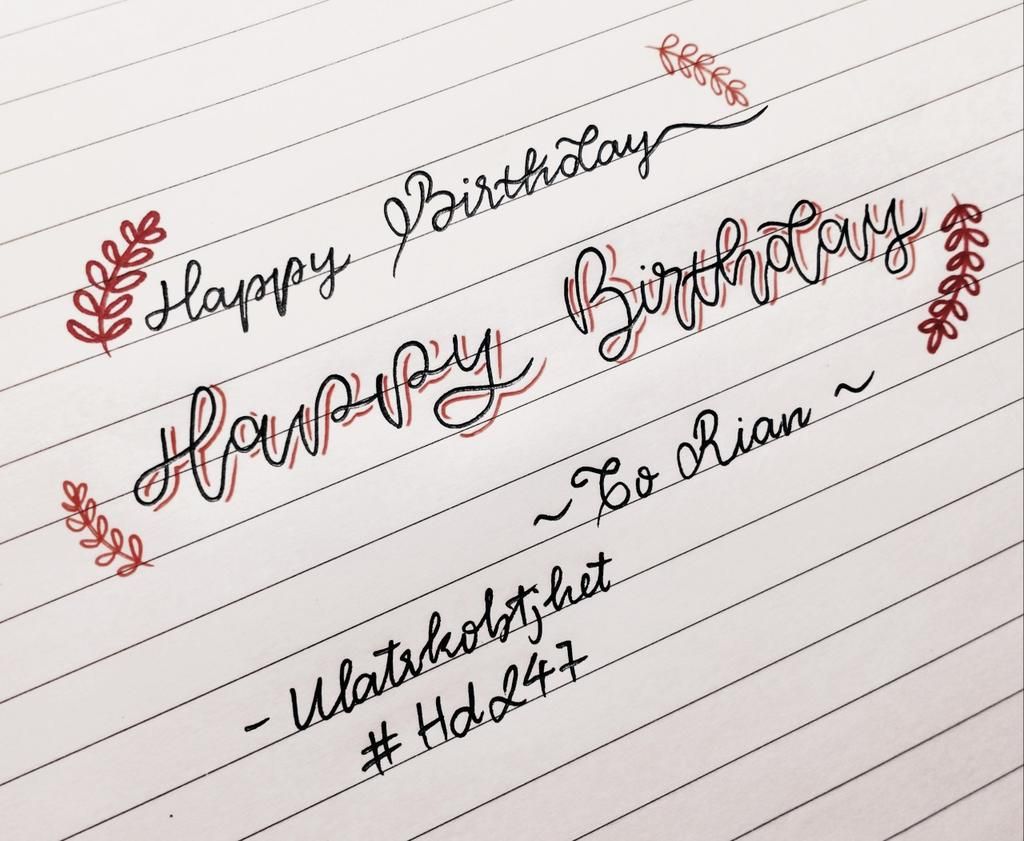 Happy Birthday
Happy Birthday
~To Rian~
- Ulatskobtjhet
#Hd247